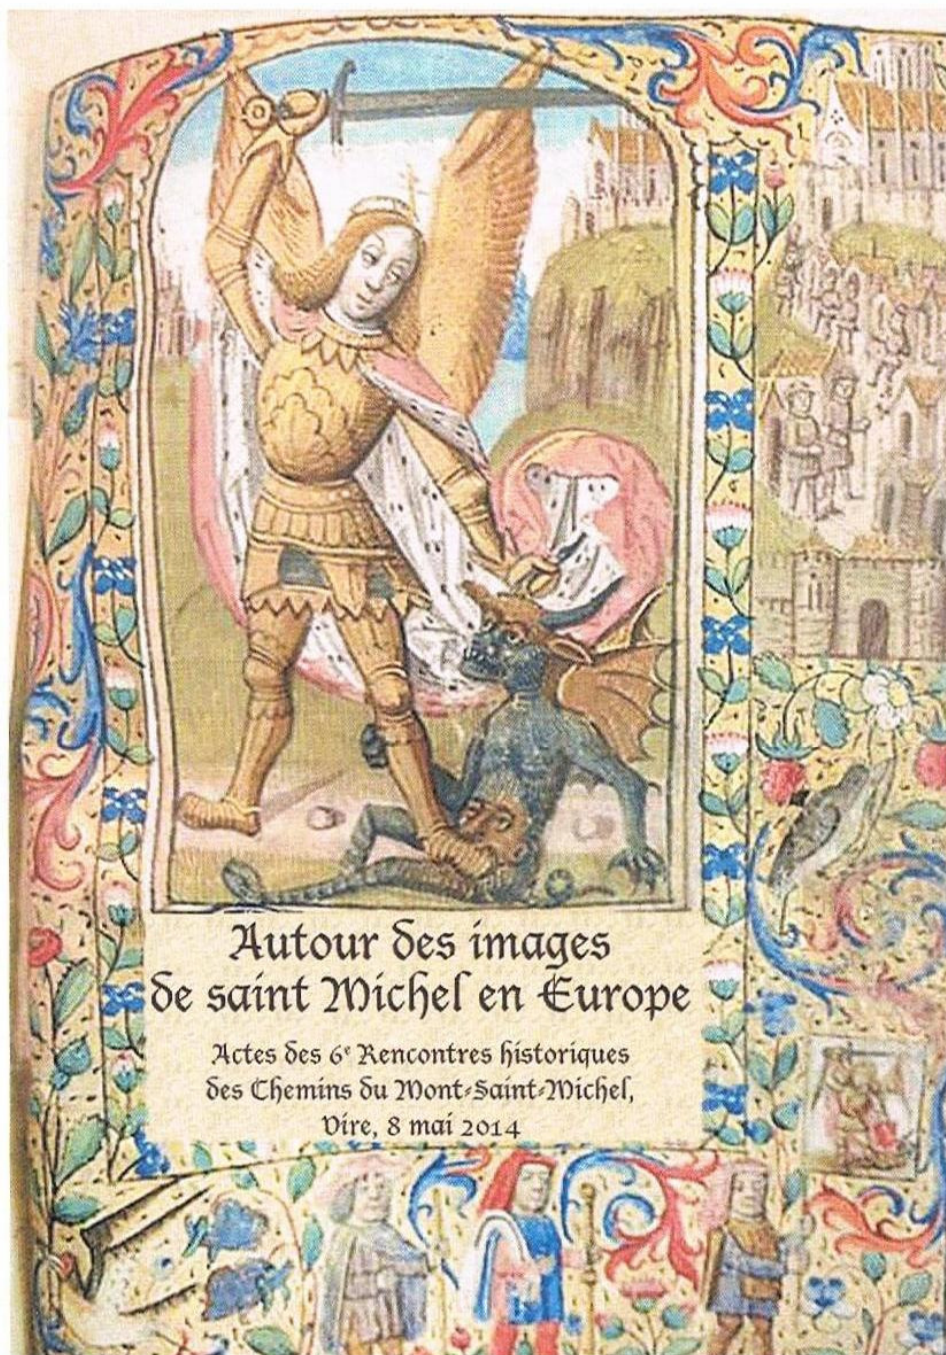 Autour des images
de saint Michel en Europe
Actes des 6e Rencontres historiques
des Chemins du Mont-Saint-Michel,
Vire, 8 mai 2014